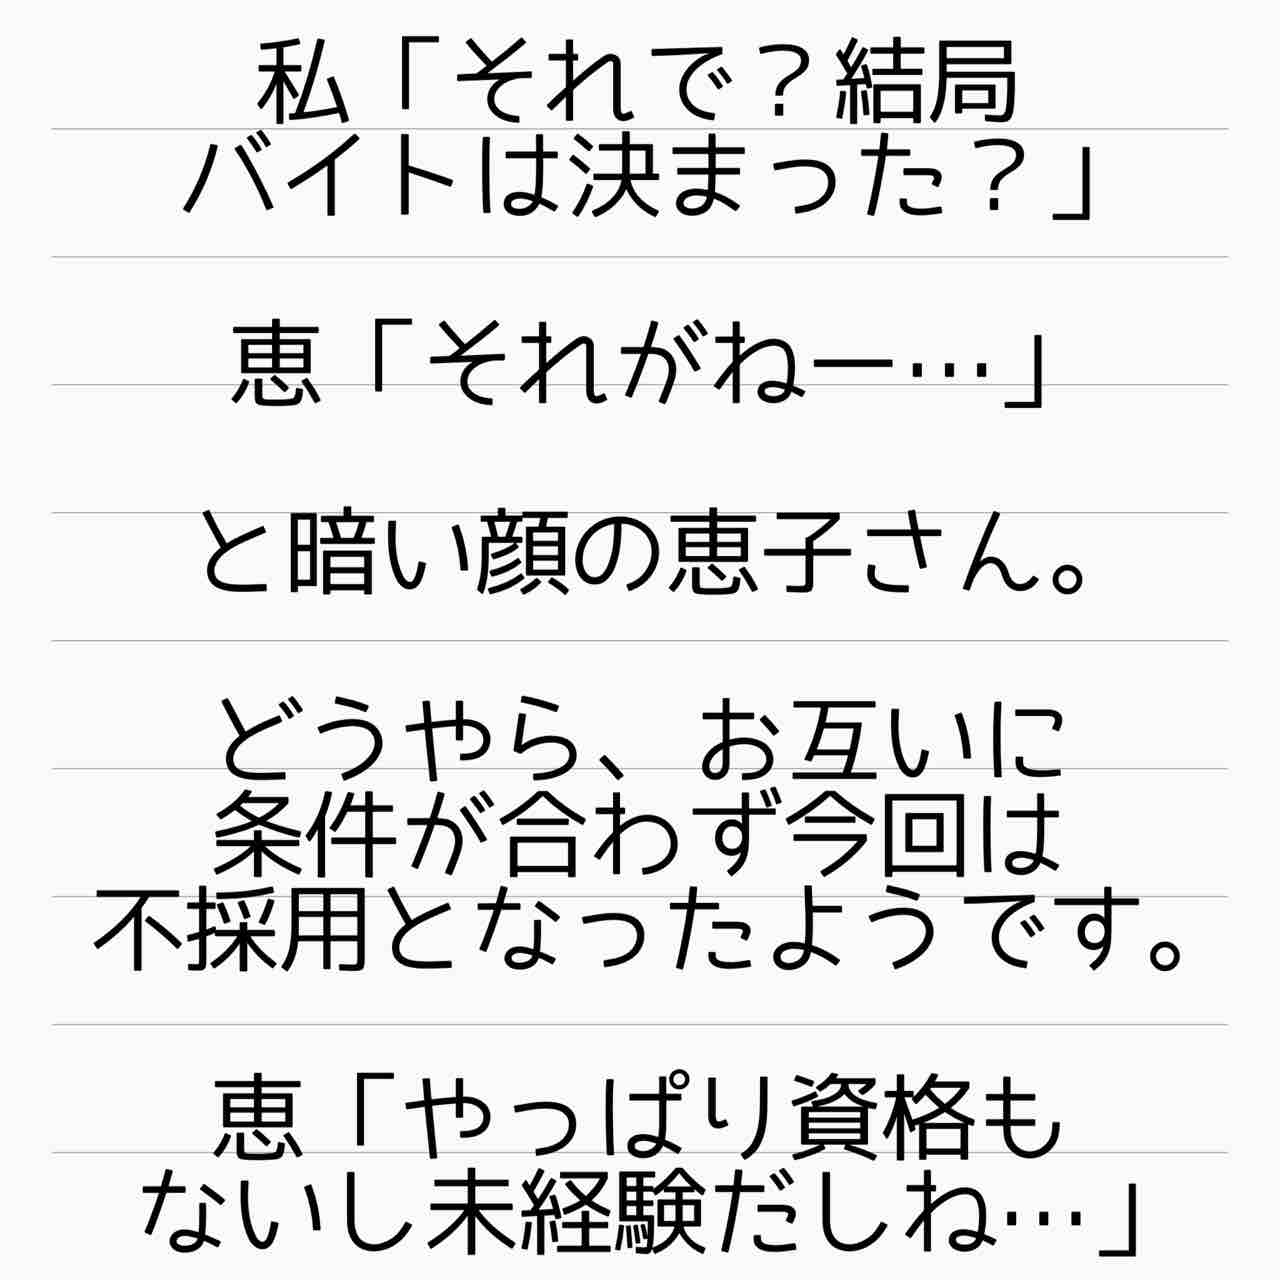 私「それで？結局
バイトは決まった？」
恵「それがねー…」
と暗い顔の恵子さん。
どうやら、お互いに
条件が合わず今回は
不採用となったようです。
恵「やっぱり資格も
ないし未経験だしね…」